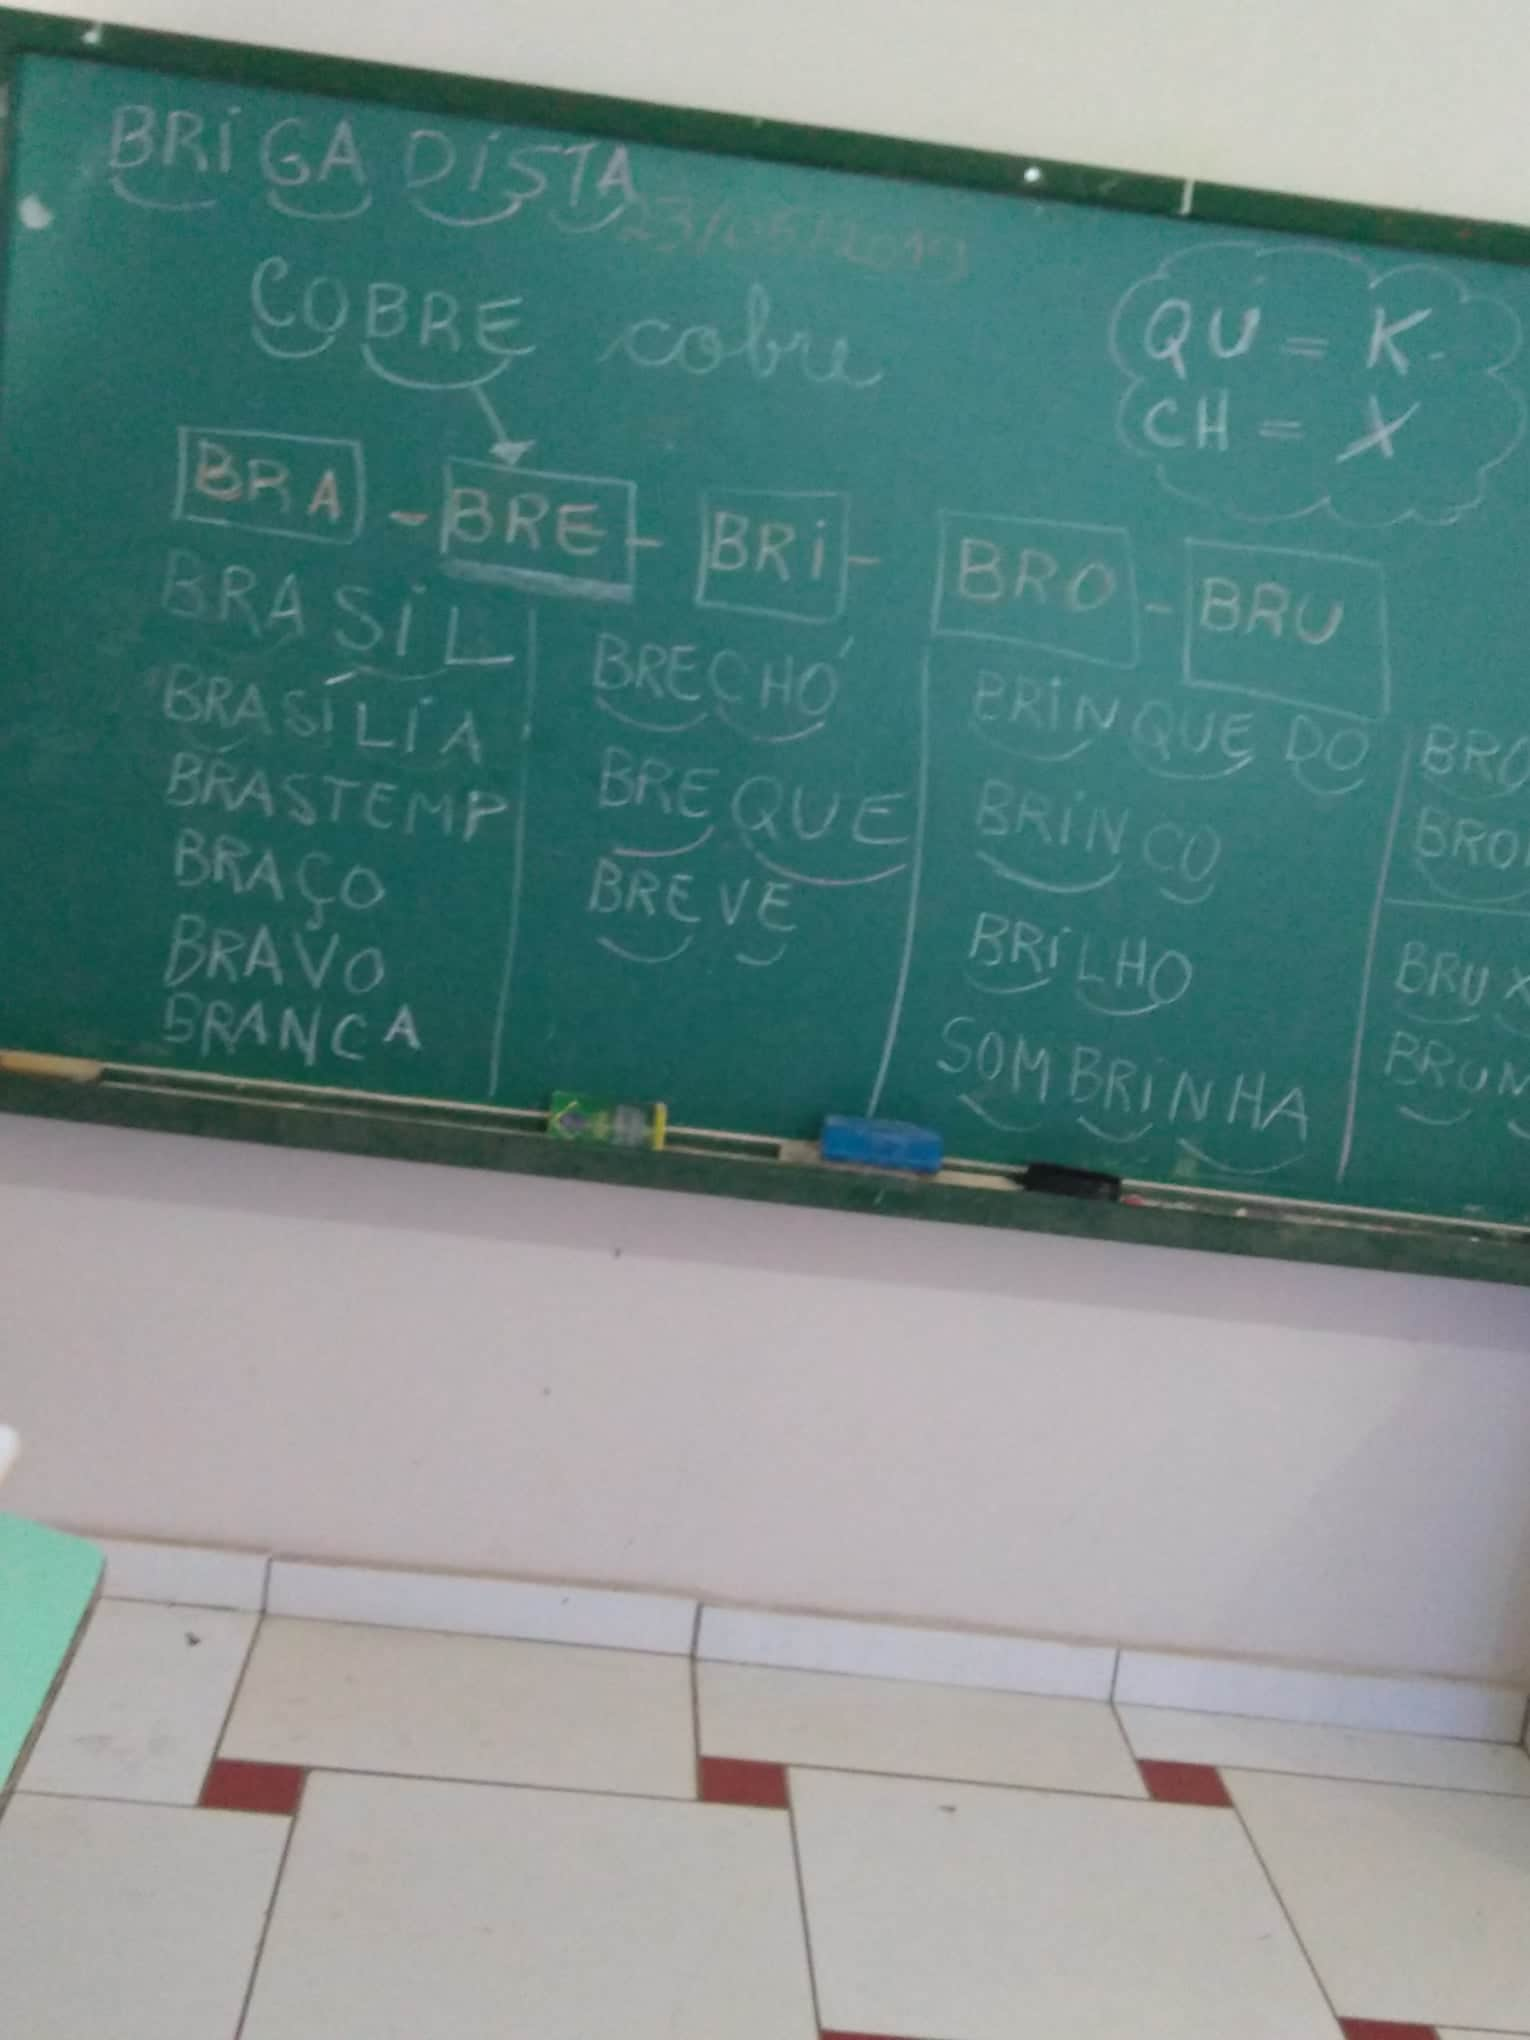 BRIGADISTA
23/05/2019
COBRE cobre
QU = K
CH = X
BRA - BRE - BRI - BRO - BRU
BRASIL
BRASÍLIA
BRASTEMP
BRAÇO
BRAVO
BRANCA
BRECHÓ
BREQUE
BREVE
BRINQUEDO
BRINCO
BRILHO
SOMBRINHA
BRO
BRO
BRUX
BRUM